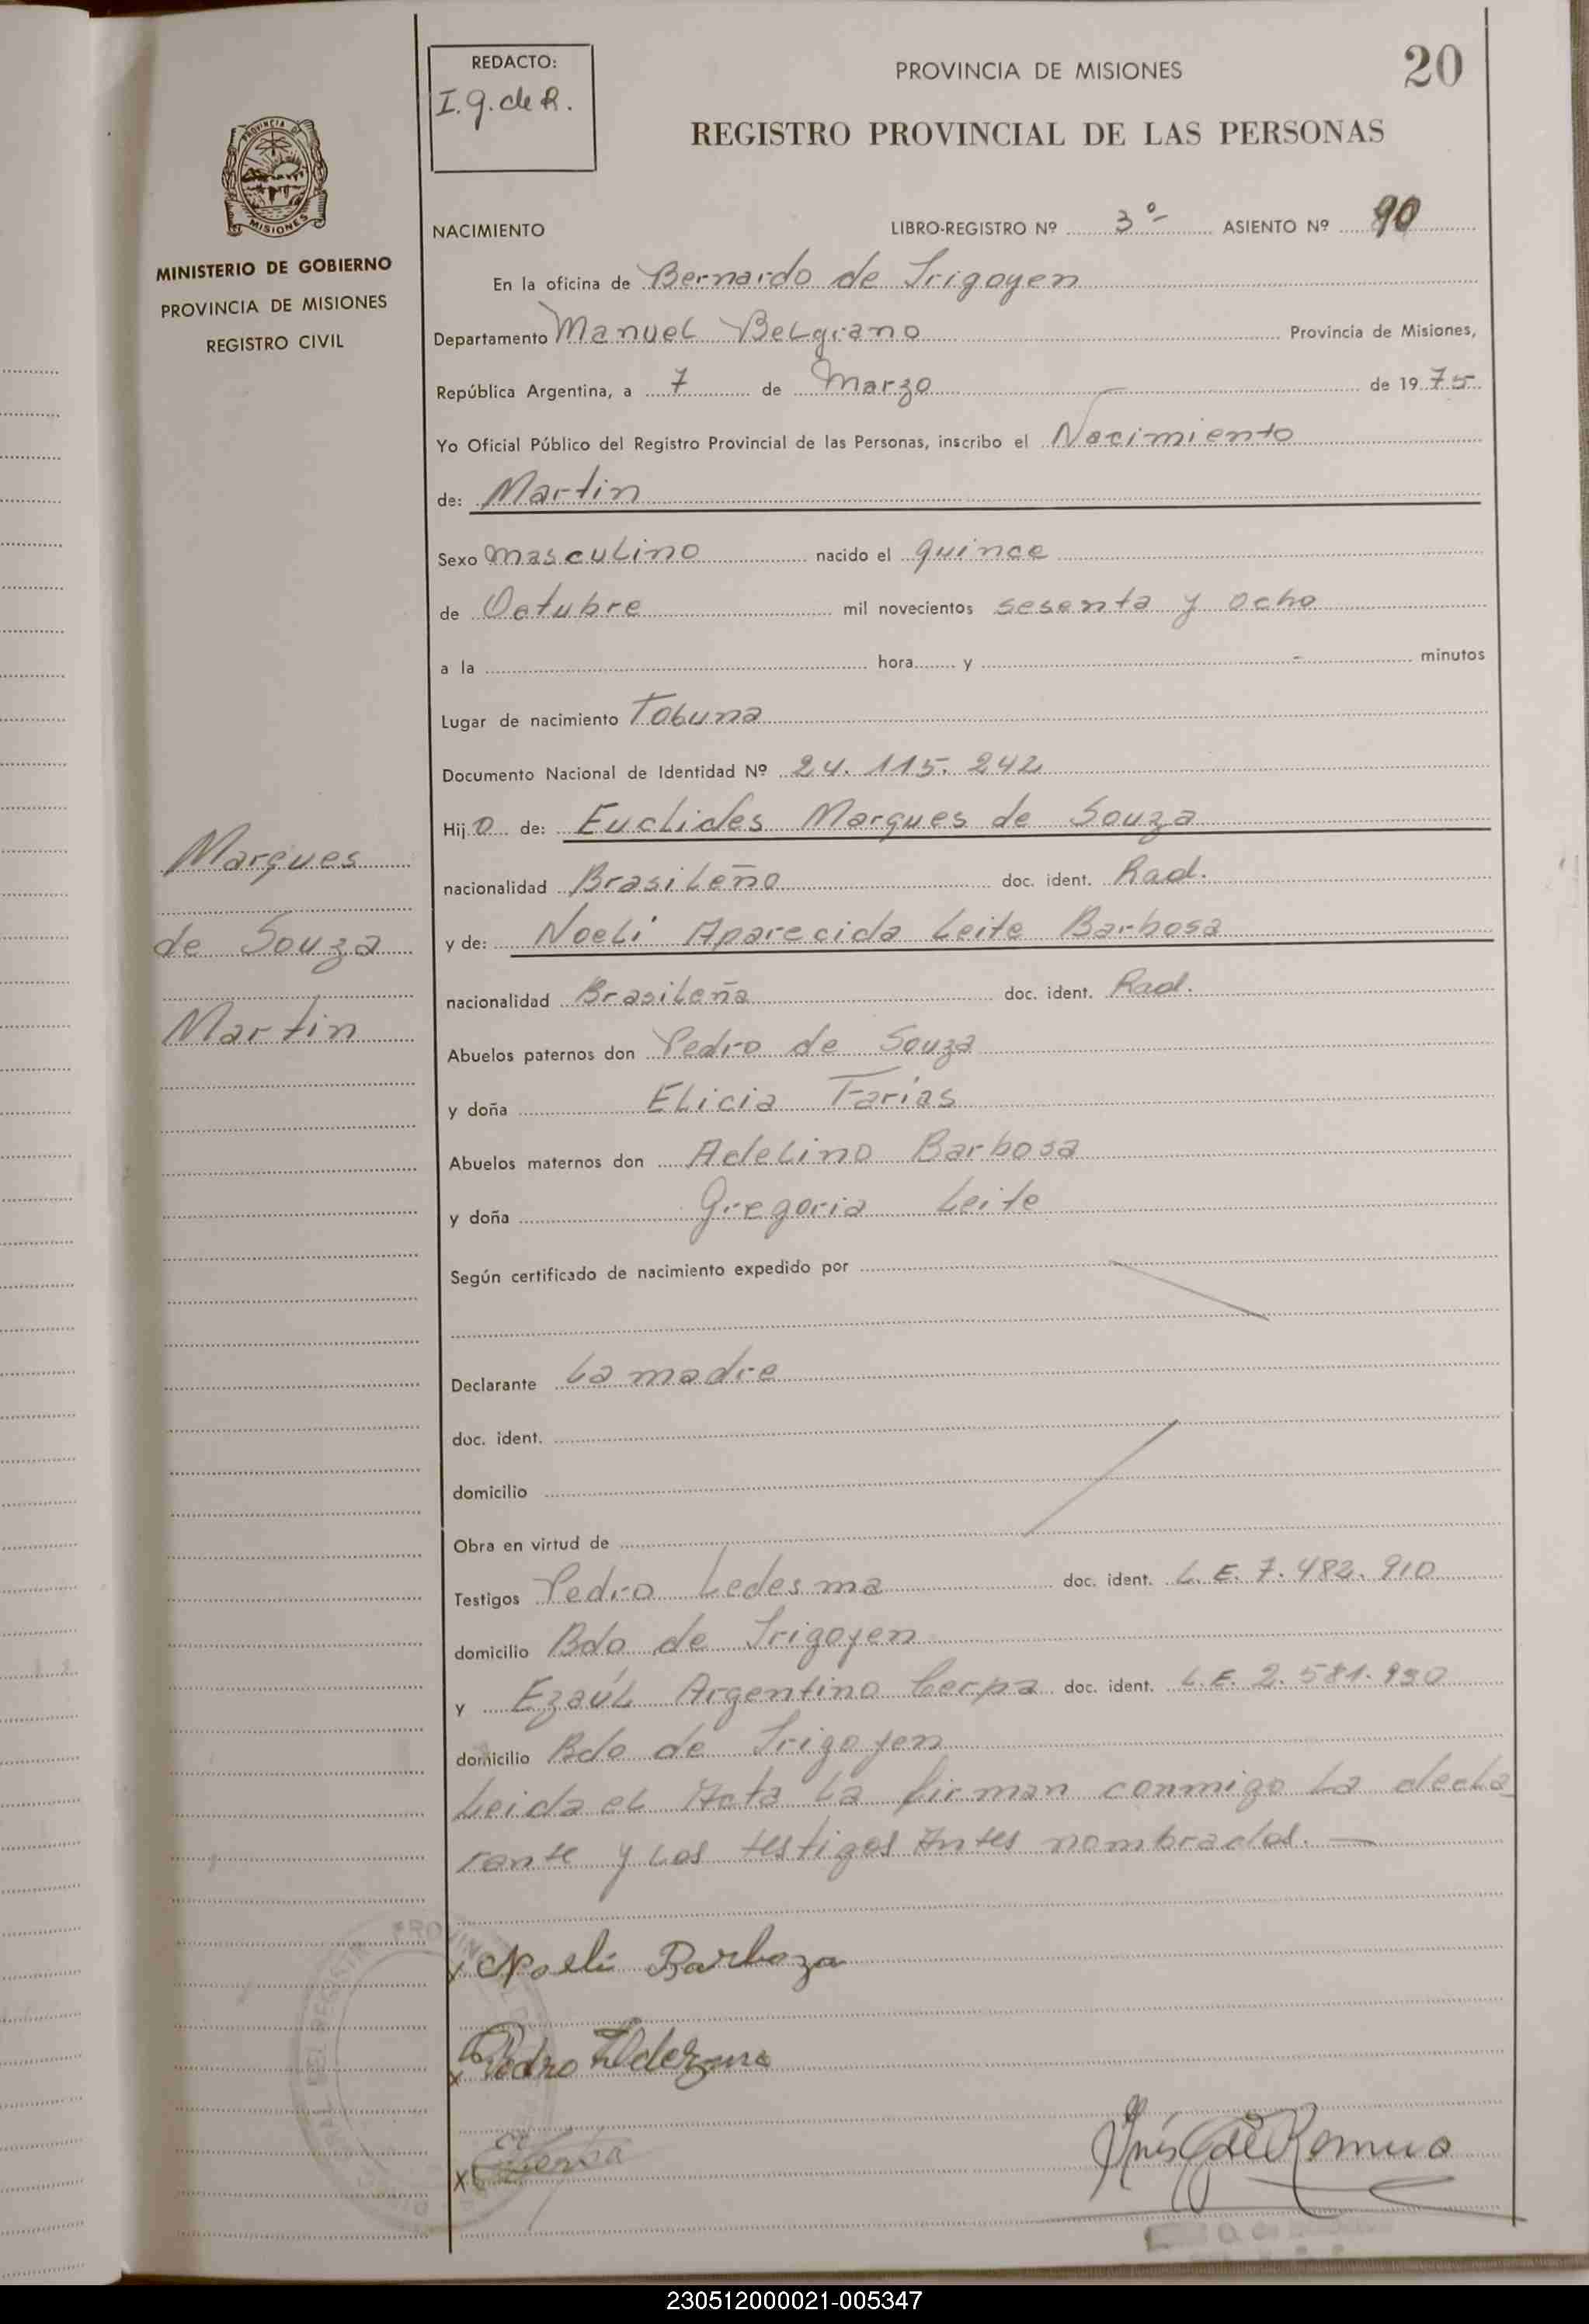 REDACTO:
I.g. de R.
PROVINCIA DE MISIONES
20
REGISTRO PROVINCIAL DE LAS PERSONAS
PROVINCIA DE
MISIONES
MINISTERIO DE GOBIERNO
PROVINCIA DE MISIONES
REGISTRO CIVIL
NACIMIENTO LIBRO-REGISTRO Nº 3º- ASIENTO Nº 90
En la oficina de Bernardo de Irigoyen
Departamento Manuel Belgrano Provincia de Misiones,
República Argentina, a 7 de Marzo de 1975
Yo Oficial Público del Registro Provincial de las Personas, inscribo el Nacimiento
de: Martin
Sexo masculino nacido el quince
de Octubre mil novecientos sesenta y ocho
a la hora y - minutos
Lugar de nacimiento Tobuna
Documento Nacional de Identidad Nº 24.115.242
Hijo de: Euclides Marques de Souza
nacionalidad Brasileño doc. ident. Rad.
y de: Noeli Aparecida Leite Barbosa
nacionalidad Brasileña doc. ident. Rad.
Abuelos paternos don Pedro de Souza
y doña Elicia Farias
Abuelos maternos don Adelino Barbosa
y doña Gregoria Leite
Según certificado de nacimiento expedido por
Declarante La madre
doc. ident.
domicilio
Obra en virtud de
Testigos Pedro Ledesma doc. ident. L.E. 7.482.910
domicilio Bdo de Irigoyen
y Ezaúl Argentino Cerpa doc. ident. L.E. 2.581.930
domicilio Bdo de Irigoyen
Leida el Acta la firman conmigo la decla
rante y los testigos Antes nombrados. —
Marques
de Souza
Martin
x Noeli Barboza
x Pedro Ledezma
x
Inés G de Romero
230512000021-005347